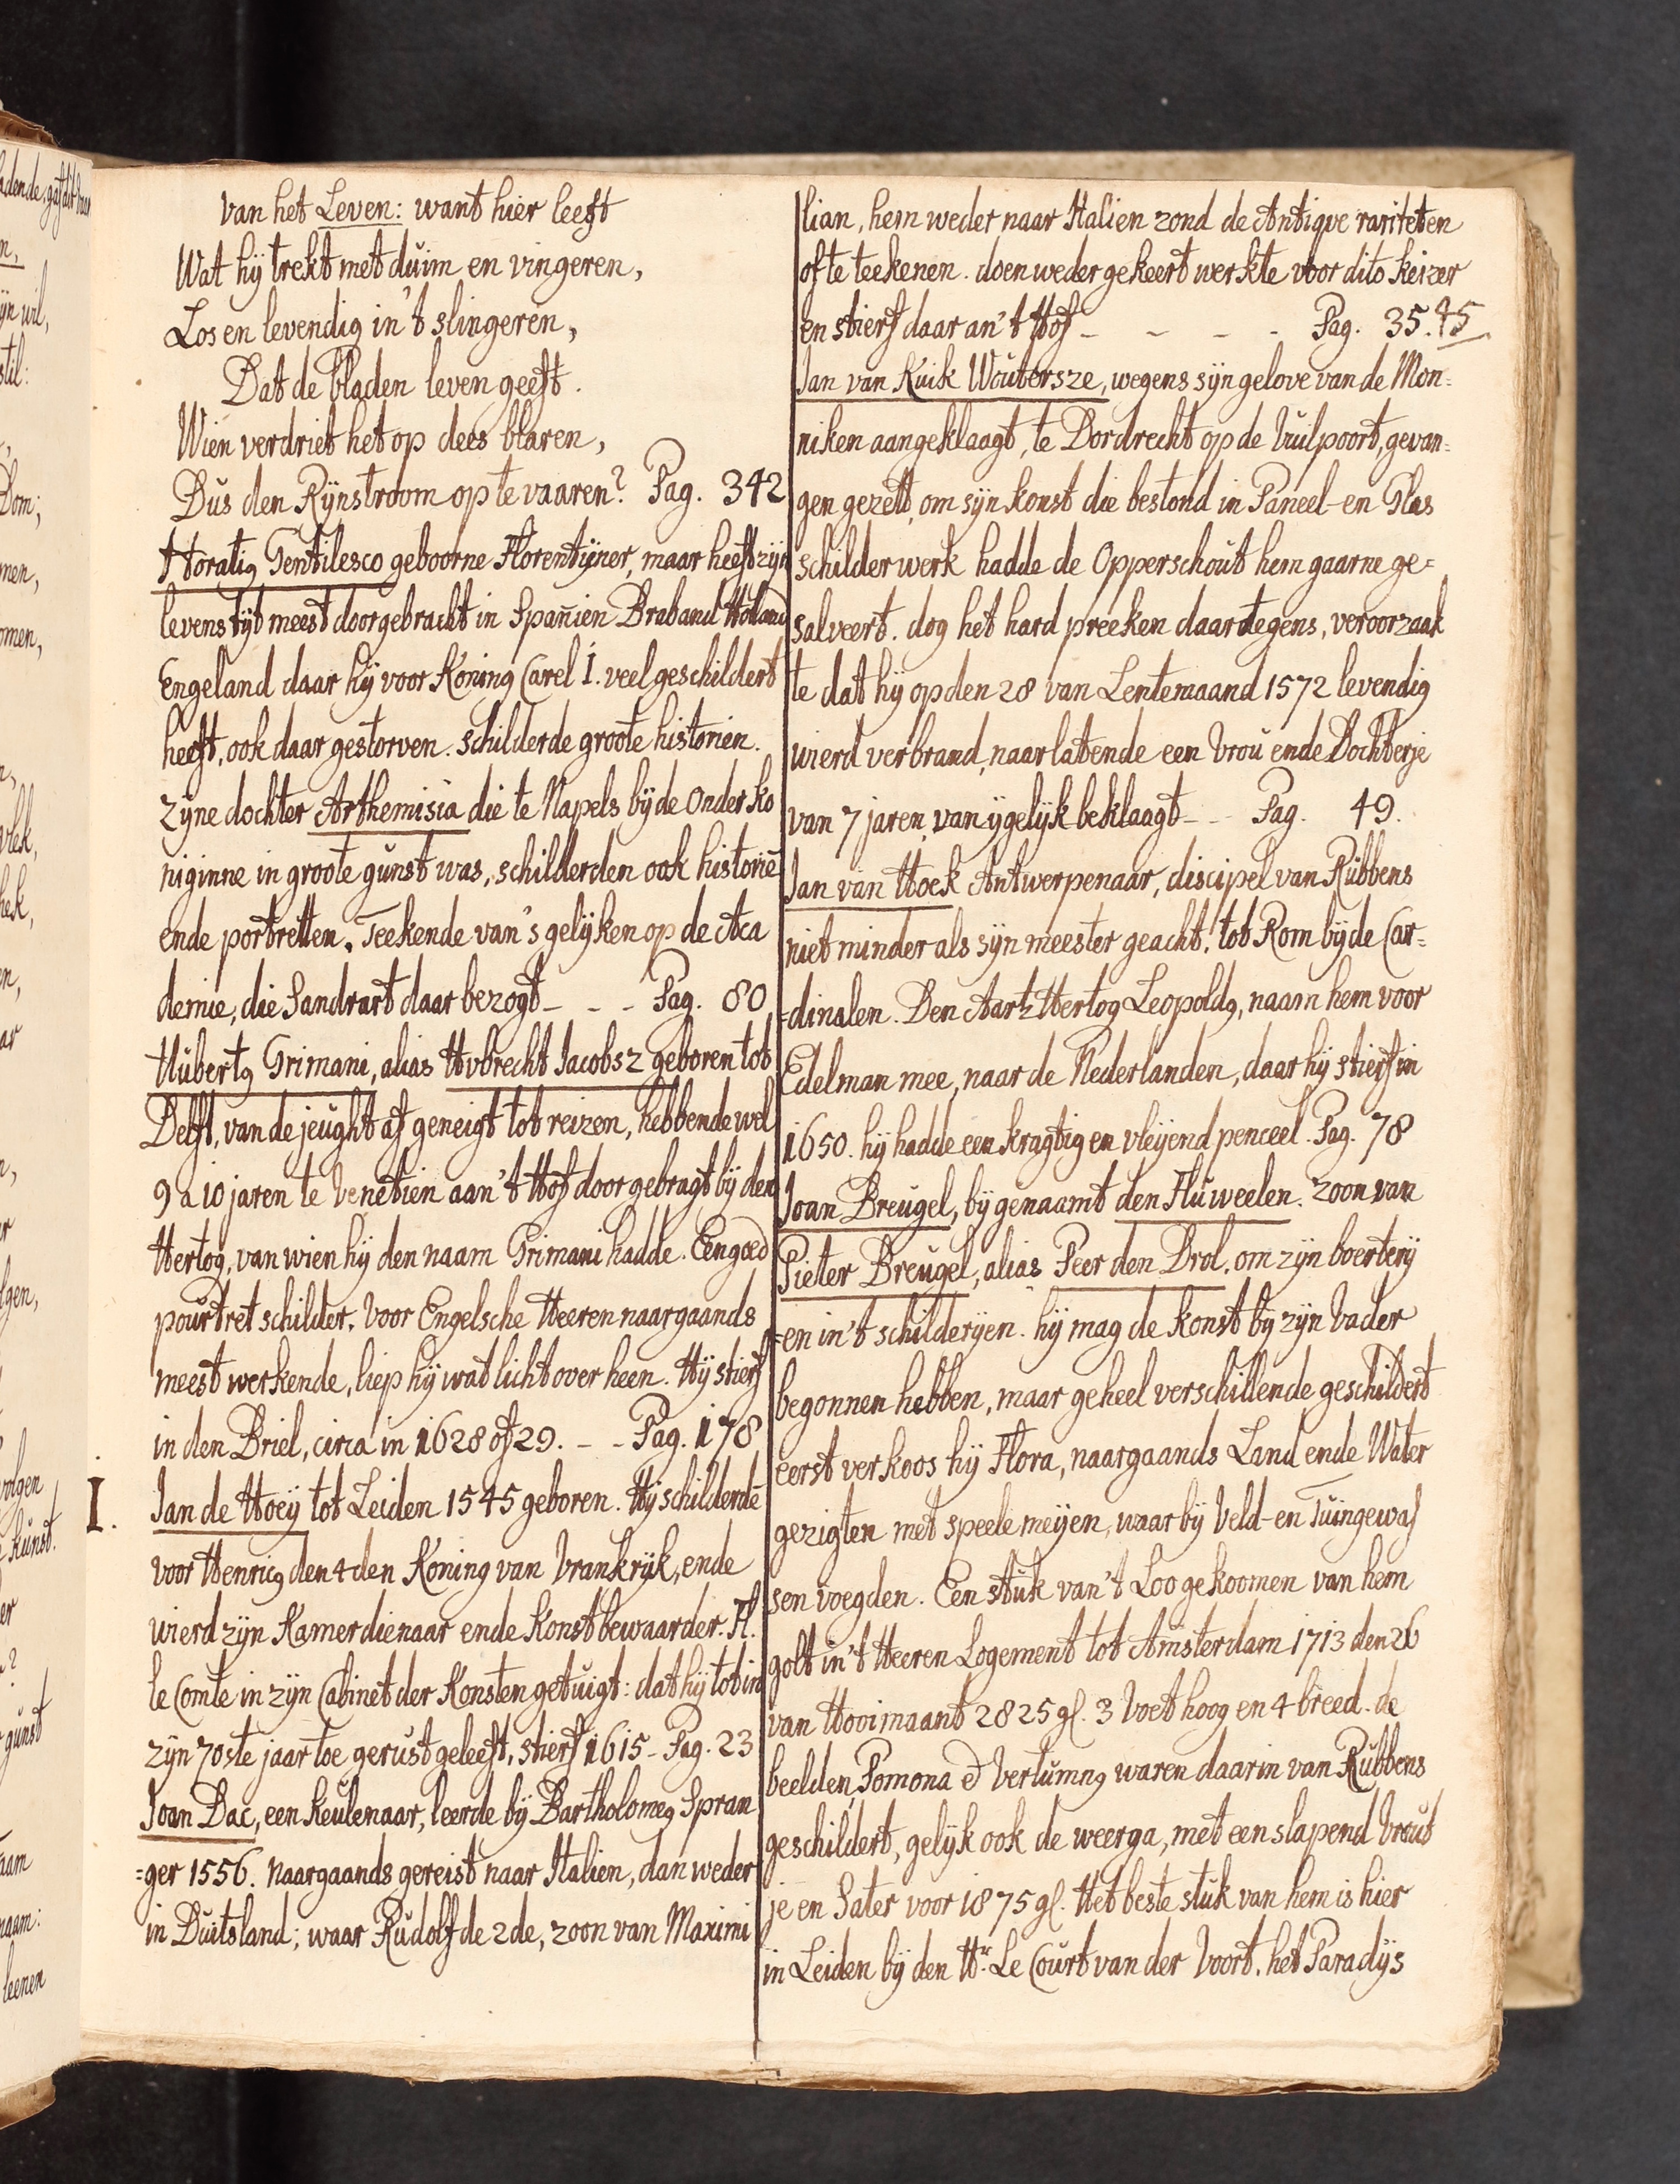 van het Leven: want hier leeft
Wat hij trekt met duim en vingeren,
Los en levendig in't slingeren,
Dat de bladen leven geeft.
Wien verdriet het op dees blaren,
Dus den Rynstroom op te vaaren? Pag. 342
Horatig Gentilesco geboorne Florentijner, maar heeft zijn
levens tijt meest doorgebracht in Spañien Braband Holland
Engeland daar hij voor Koning Carel I. veel geschildert
heeft, ook daar gestorven. schilderde groote historien.
zijne dochter Arthemisia die te Napels bij de onder ko
niginne in groote gunst was, schilderden ook historiē
ende portretten. Teekende van's gelijken op de Aca
demie, die Sandrart daar bezogt - - - Pag. 80
Hubertg Grimani, alias Hvbrecht Jacobsz geboren tot
Delft, van de jeught af geneigt tot reizen, hebbende wel
9 a 10 jaren te Venetien aan't Hof door gebragt bij den
Hertog, van wien hij den naam Grimani hadde. Een goed
pourtret schilder. Voor Engelsche Heeren naargaands
meest werkende, liep hij wat licht over heen. Hij stierf
in den Briel, circa in 1628 of 29. - - Pag. 178
I. Jan de Hoeij tot Leiden 1545 geboren. Hij schilderde
voor Henricg den 4den Koning van Vrankrijk, ende
wierd zijn Kamerdienaar ende Konstbewaarder. Fl.
le Comte in zijn Cabinet der Konsten getuigt: dat hij tot in
zijn 70ste jaar toe gerust geleeft, stierf 1615 - Pag. 23
Joan Dac, een Keulenaar, leerde bij Bartholomeg Spran
=ger 1556. naargaands gereist naar Italien, dan weder
in Duitsland; waar Rudolf de 2de, zoon van Maximi
lian, hem weder naar Italien zond de Antiqve rariteten
of te teekenen. doen weder gekeert werkte voor dito keizer
en stierf daar an't Hof - - - - Pag. 35.45
Jan van Kuik Woutersze, wegens sijn gelove van de Mon=
niken aangeklaagt, te Dordrecht op de Vuilpoort, gevan=
gen gezett, om sijn konst die bestond in Paneel- en Glas
schilderwerk hadde de Opperschout hem gaarne ge=
salveert. dog het hard preeken daartegens, veroorzaak
te dat hij op den 28 van Lentemaand 1572 levendig
wierd verbrand, naarlatende een Vrou ende Dochterje
van 7 jaren, van ijgelijk beklaagt - - Pag. 49.
Jan van Hoek Antwerpenaar, discipel van Rubbens
niet minder als sijn meester geacht. tot Rom bij de Car=
=dinalen. Den Aartz Hertog Leopoldg, naam hem voor
Edelman mee, naar de Nederlanden, daar hij stierf in
1650. hij hadde een kragtig en vleijend penceel. Pag. 78
Joan Breugel, bijgenaamt den Fluweelen. zoon van
Pieter Breugel, alias Peer den Drol. om zijn boerterij
=en in't schilderijen. hij mag de konst bij zijn Vader
begonnen hebben, maar geheel verschillende geschildert
eerst verkoos hij Flora, naargaands Land ende Water
gezigten met speele meijen, waar bij Veld- en Tuingewas
sen voegden. Een stuk van't Loo gekoomen van hem
golt in't Heeren Logement tot Amsterdam 1713 den 26
van Hooimaant 2825 gl. 3 Voet hoog en 4 breed. de
beelden Pomona & Vertumng waren daarin van Rubbens
geschildert, gelijk ook de weerga, met een slapend Vrout
je en Sater voor 1875 gl. Het beste stuk van hem is hier
in Leiden bij den Hr. Le Court van der Voort. het Paradijs